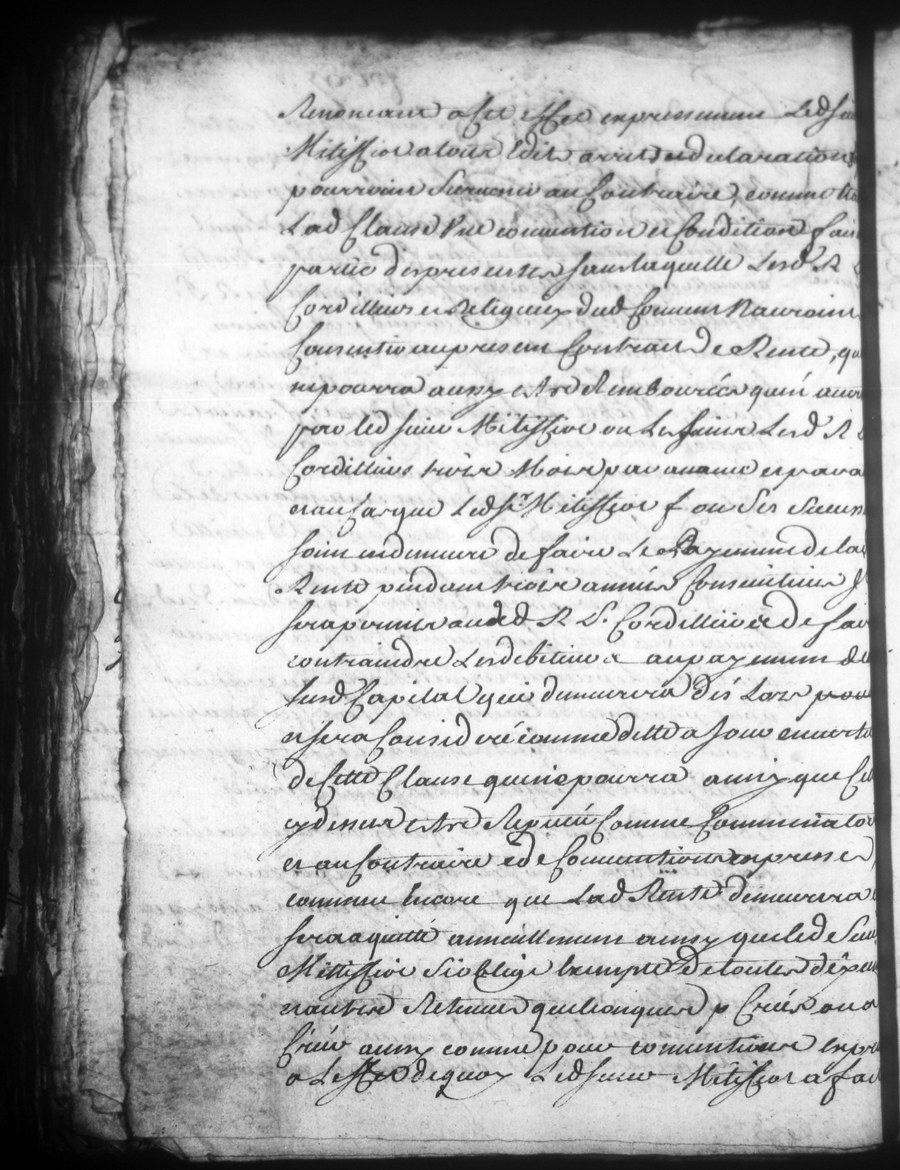 Renoncant a cet effet expressement Led Sie
Militfior a tous Edits arrets et declarations
pourroient Survenir au Contraire, comme
Lad Clause Une convention et Condition fai
partie des presentes sans laquelle Lesd. R
Cordilliers et Religieux dud Convent Nauroient
Consentis au present Contract de Rente, qu
ne pourra aussy estre Rembourcée quen aver
par led sieur Militfior ou Les siens Lesd R
Cordilliers trois Mois par avance et par
en cas que Led Sr. Militfior f ou Ses
soient endemeure de faire Le Payement de la
Rente pendant trois années Consecutives
sera permis ausd R P. Cordilliers de fai
contraindre Lesd debiteurs au payement
Capital que demeurera dés Lors pour
et sera Consideré comme dette a jour en vertu
de Cette Clause qui ne pourra aussy que Cel
cy dessus estre Reputée Comme Comminatoi
et au Contraire de Convention expresse
comme Encore que Lad Rente demeurera
sera aquitté annuellement aussy que led Sieur
Militfior S'oblige Exempte de toutes
n autres Retenues quelconques Créés ou a
Créer aussy comme pour convention expre
a Leffet de quoy Led sieur Militfior a fai